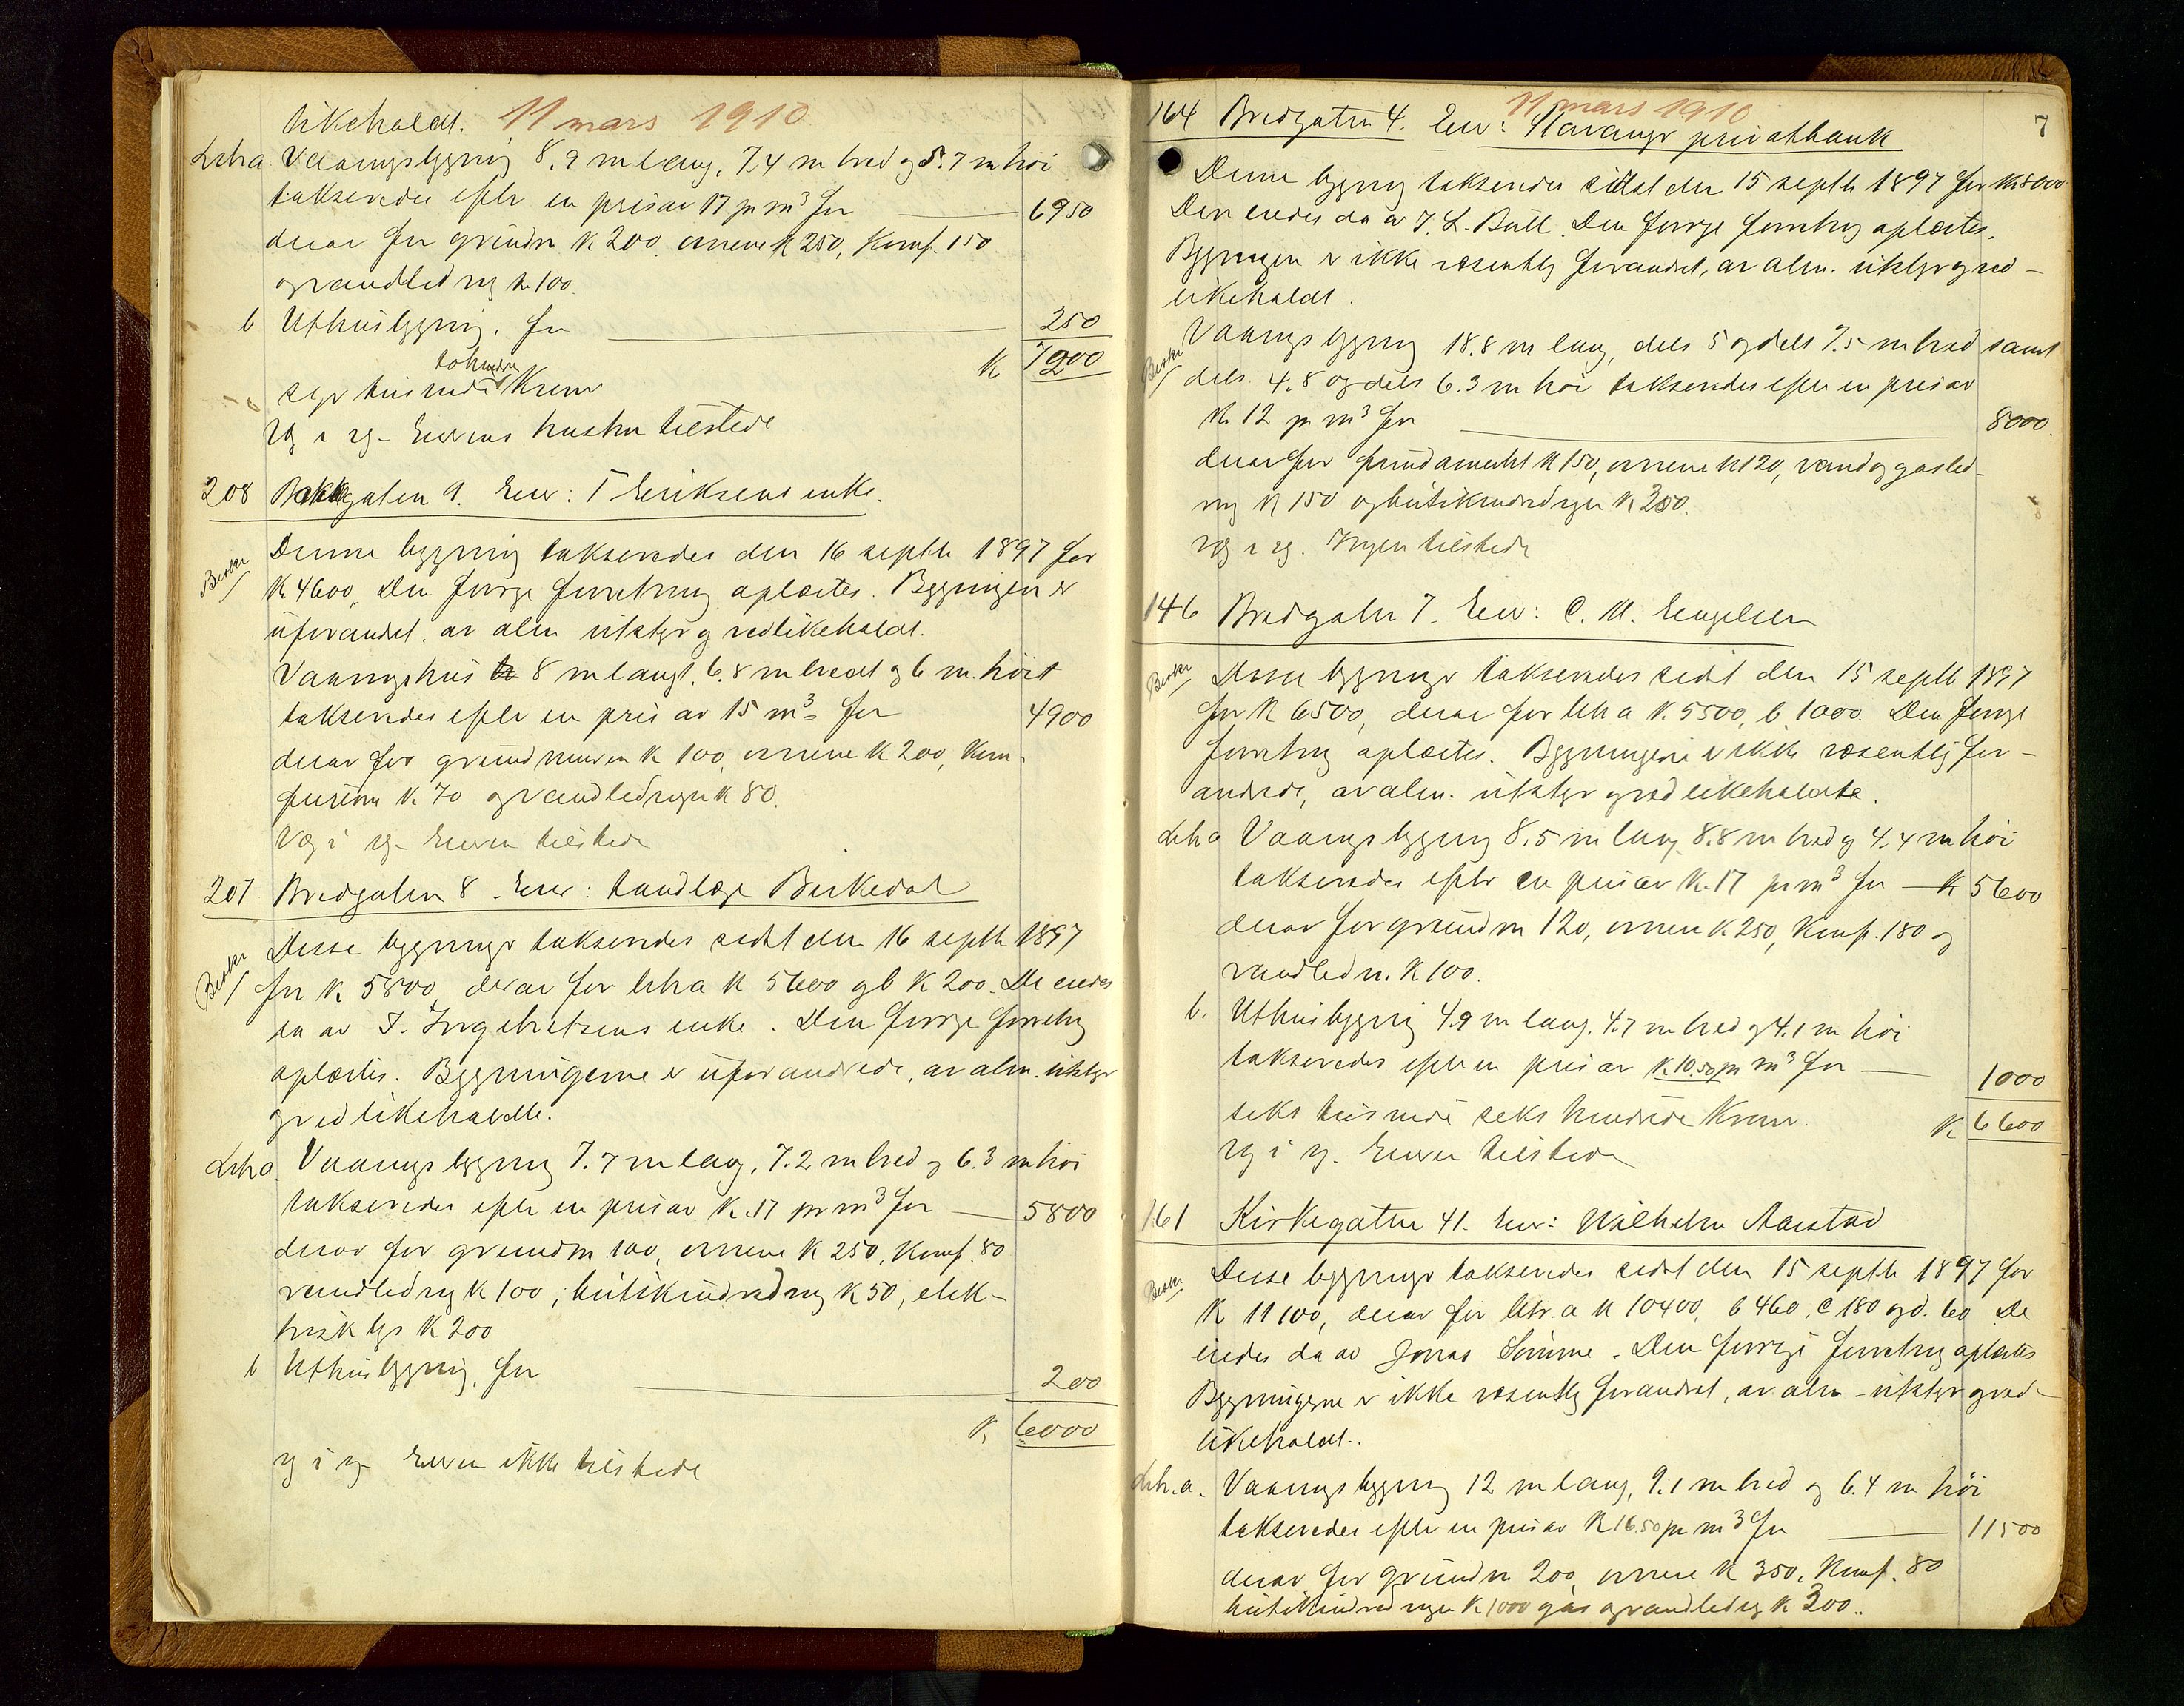 likeholdt. 11 mars 1910
Litra Vaaningsbygning 8.9 m lang, 7.4 m bred og 5.7 m høi
takseredes efter en pris av 17 pr m³ for 6950
derav for grundm k 200. ovnene k 250, Komf. 150
og vandledning k 100.
b Uthusbygning, for 250
k 7200
syv tusinde tohundre Kroner
Vg i vg - Eierens hustru tilstede
208 Bakkegaten 9. Eier: T Eriksens enke.
Besikt
Denne bygning takseredes den 16 septbr 1897 for
K 4600. Den forrige forretning oplæstes. Bygningen er
uforandret, av alm utstyr og vedlikeholdt.
Vaaningshus 8 m langt, 6.8 m bredt og 6 m. høit
takseredes efter en pris av 15 m³ for 4900
derav for grundmuren k 100, ovnene k 200, Kom-
furerne k 70 og vandledningen k 80.
Vg i vg - Eieren tilstede
207 Bredgaten 8. Eier: tandlæge Birkedal
Disse bygninger takseredes sidst den 16 septbr 1897
for K 5800, derav for litra K 5600 og b K 200. De eiedes
da av T. Ingebretsens enke. Den forrige forretning
oplæstes. Bygningerne er uforandrede, av alm. utstyr
og vedlikeholdte.
Litra. Vaaningsbygning 7.7 m lang, 7.2 m bred og 6.3 m høi
takseredes efter en pris av K. 17 pr m³ for 5800
derav for grundm 100, ovnene K 250, Komf. 80
vandledning K 100, butikindredning K 50, elek-
trisk lys K 200
b Uthusbygning, for 200
K 6000
Vg i vg - Eieren ikke tilstede
7
11 mars 1910
164 Bredgaten 4. Eier: Stavanger privatbank
Denne bygning takseredes sidst den 15 septbr 1897 for K 8000
Den eiedes da av J. L. Bull. Den forrige forretning oplæstes.
Bygningen er ikke væsentlig forandret, av alm. utstyr og ved-
likeholdt.
Vaaningsbygning 18.8 m lang, dels 5 og dels 7.5 m bred samt
dels 4.8 og dels 6.3 m høi takseredes efter en pris av
K 12 pr m³ for 8000.
derav for fundamentet K 150, ovnene K 120, vand og gasled-
ning K 150 og butikindredningen K 250.
Vg i vg. Ingen tilstede
146 Bredgaten 7. Eier: C. M. Engelsen
Disse bygninger takseredes sidst den 15 septbr 1897
for K 6500, derav for litra K. 5500, b 1000. Den forrige
forretning oplæstes. Bygningerne er ikke væsentlig for-
andrede, av alm. utstyr og vedlikeholdte.
Litra Vaaningsbygning 8.5 m lang 8.8 m bred og 4.4 m høi
takseredes efter en pris av K. 17 pr m³ for K 5600
derav for grundm 120, ovnene K 250, Komf. 180 og
vandledn. K 100.
b. Uthusbygning 4.9 m lang, 4.7 m bred og 4.1 m høi
takseredes efter en pris av K. 10.50 pr m³ for 1000
seks tusinde seks hundrede Kroner. K 6600
Vg i vg. Eieren tilstede
161 Kirkegaten 41. Eier: Wilhelm Aarstad
Disse bygninger takseredes sidst den 15 septbr 1897 for
K 11100, derav for litr. a K 10400, b 460, c 180 og d. 60. De
eiedes da av Jonas Sømme. Den forrige forretning oplæstes
Bygningerne er ikke væsentlig forandret, av alm - utstyr og ved-
likeholdt.
Litr. a. Vaaningsbygning 12 m lang, 9.1 m bred og 6.4 m høi
takseredes efter en pris av K 16.50 pr m³ for 11500
derav for grundm 200, ovnene K 350, Komf. 80
butikindredningen K 1000 gas og vandledning K 300.